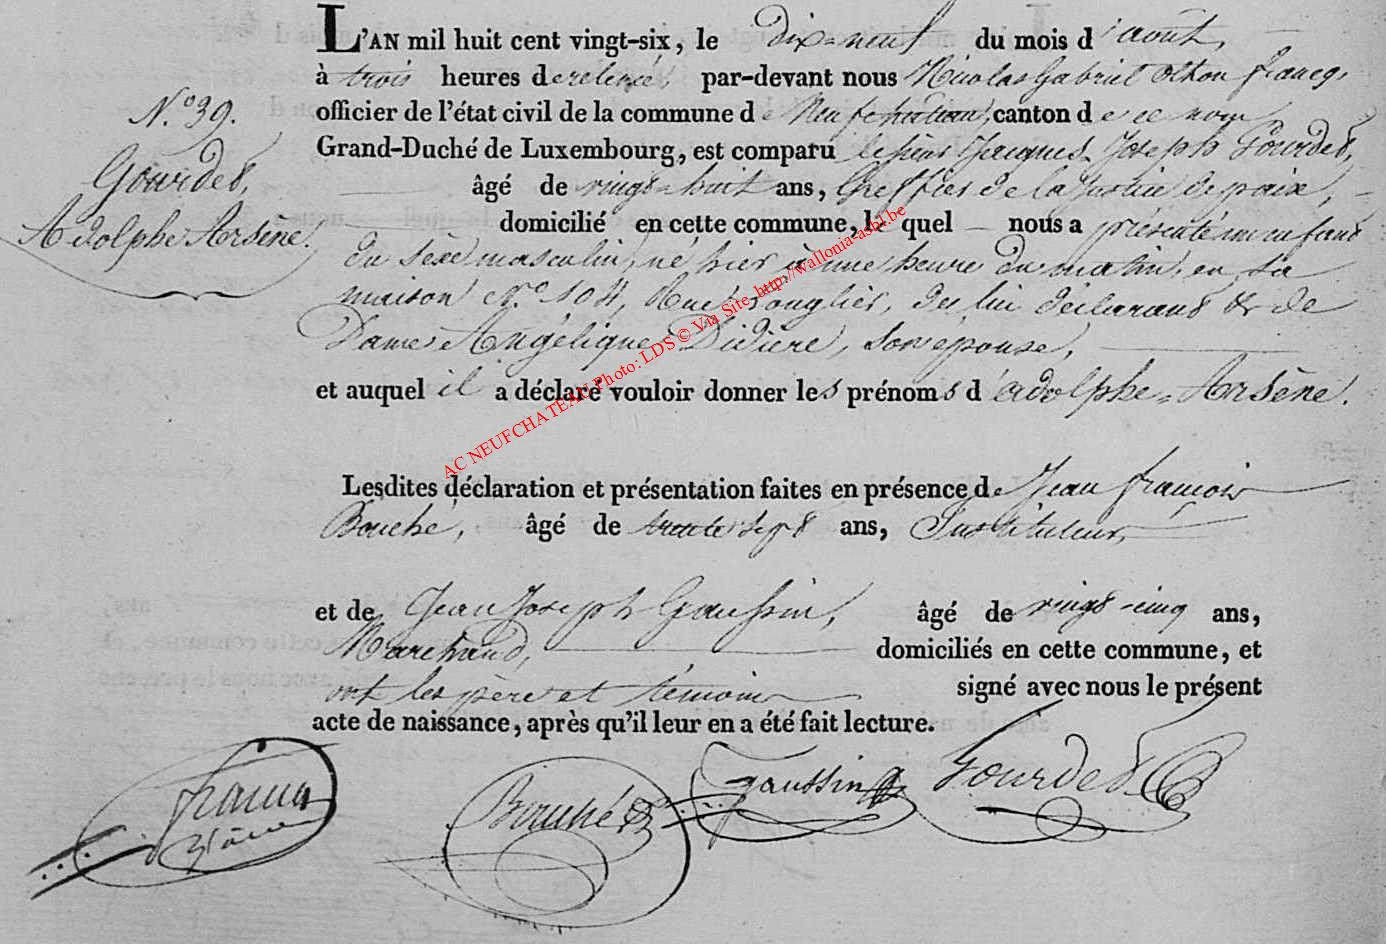 L'AN mil huit cent vingt-six, le Dix-neuf du mois d'aout,
à trois heures de relevée, par-devant nous Nicolas Gabriel Othon francq,
officier de l'état civil de la commune de Neufchateau, canton de ce nom
Grand-Duché de Luxembourg, est comparu le sieur Jacques Joseph Gourdet,
âgé de vingt-huit ans, Greffier de la Justice de paix,
domicilié en cette commune, le quel nous a présenté un enfant
du sèxe masculin, né hier à une heure du matin, en sa
maison N.° 104, Rue, de lui déclarant & de
Dame Angélique Didière, son épouse,
et auquel il a déclaré vouloir donner les prénoms d'adolphe-Arsène.
N.° 39.
Gourdet,
Adolphe Arsène.
Lesdites déclaration et présentation faites en présence de Jean françois
Bouché, âgé de trente sept ans, Instituteur,
et de Jean Joseph Gaussin, âgé de vingt-cinq ans,
Marchand, domiciliés en cette commune, et
ont les père et témoins signé avec nous le présent
acte de naissance, après qu'il leur en a été fait lecture.
Bouché gaussin Gourdet
AC NEUFCHATEAU Photo: LDS © Via Site http://wallonia-asbl.be